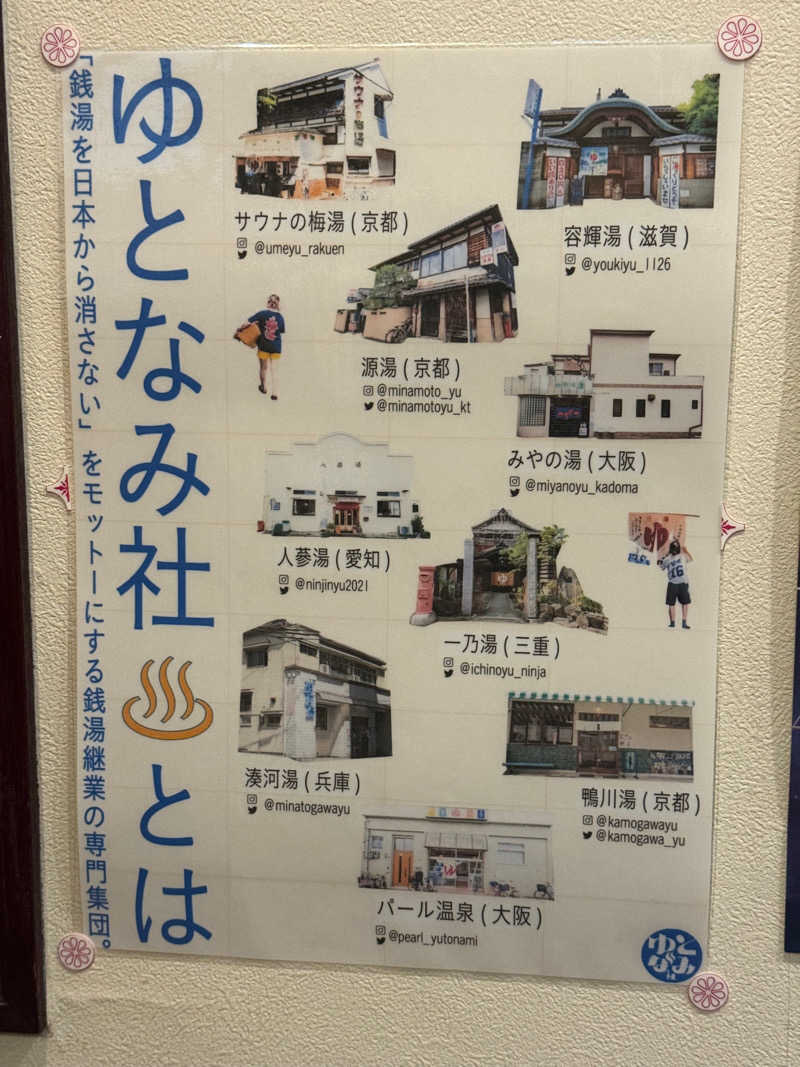 ゆとなみ社♨とは
「銭湯を日本から消さない」をモットーにする銭湯継業の専門集団。
サウナの梅湯
サウナの梅湯(京都)
@umeyu_rakuen
容輝湯(滋賀)
@youkiyu_1126
源湯(京都)
@minamoto_yu
@minamotoyu_kt
みやの湯(大阪)
@miyanoyu_kadoma
人蔘湯
人蔘湯(愛知)
@ninjinyu2021
ゆ
一乃湯(三重)
@ichinoyu_ninja
ゆ
16
湊河湯(兵庫)
@minatogawayu
鴨川湯(京都)
@kamogawayu
@kamogawa_yu
ゆ
パール温泉(大阪)
@pearl_yutonami
ゆとなみ社